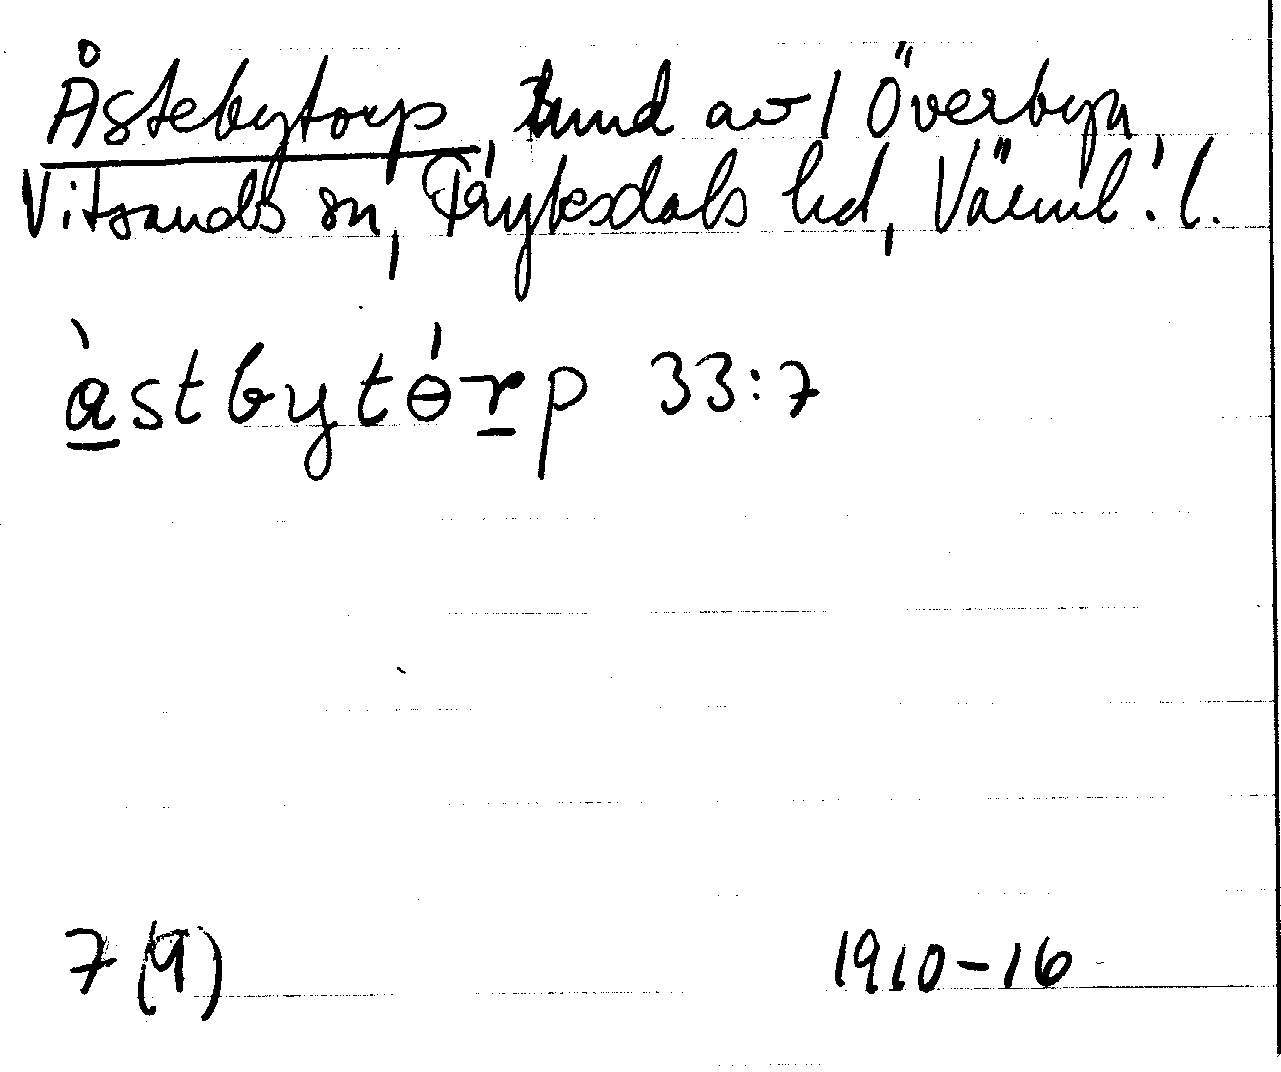 Åstebytorp, hmd av 1 Överbyn
Vitsands sn, Fryksdals hd, Värml. l.
àstbytɵ́rp 33:7
7 (9)
1910-16